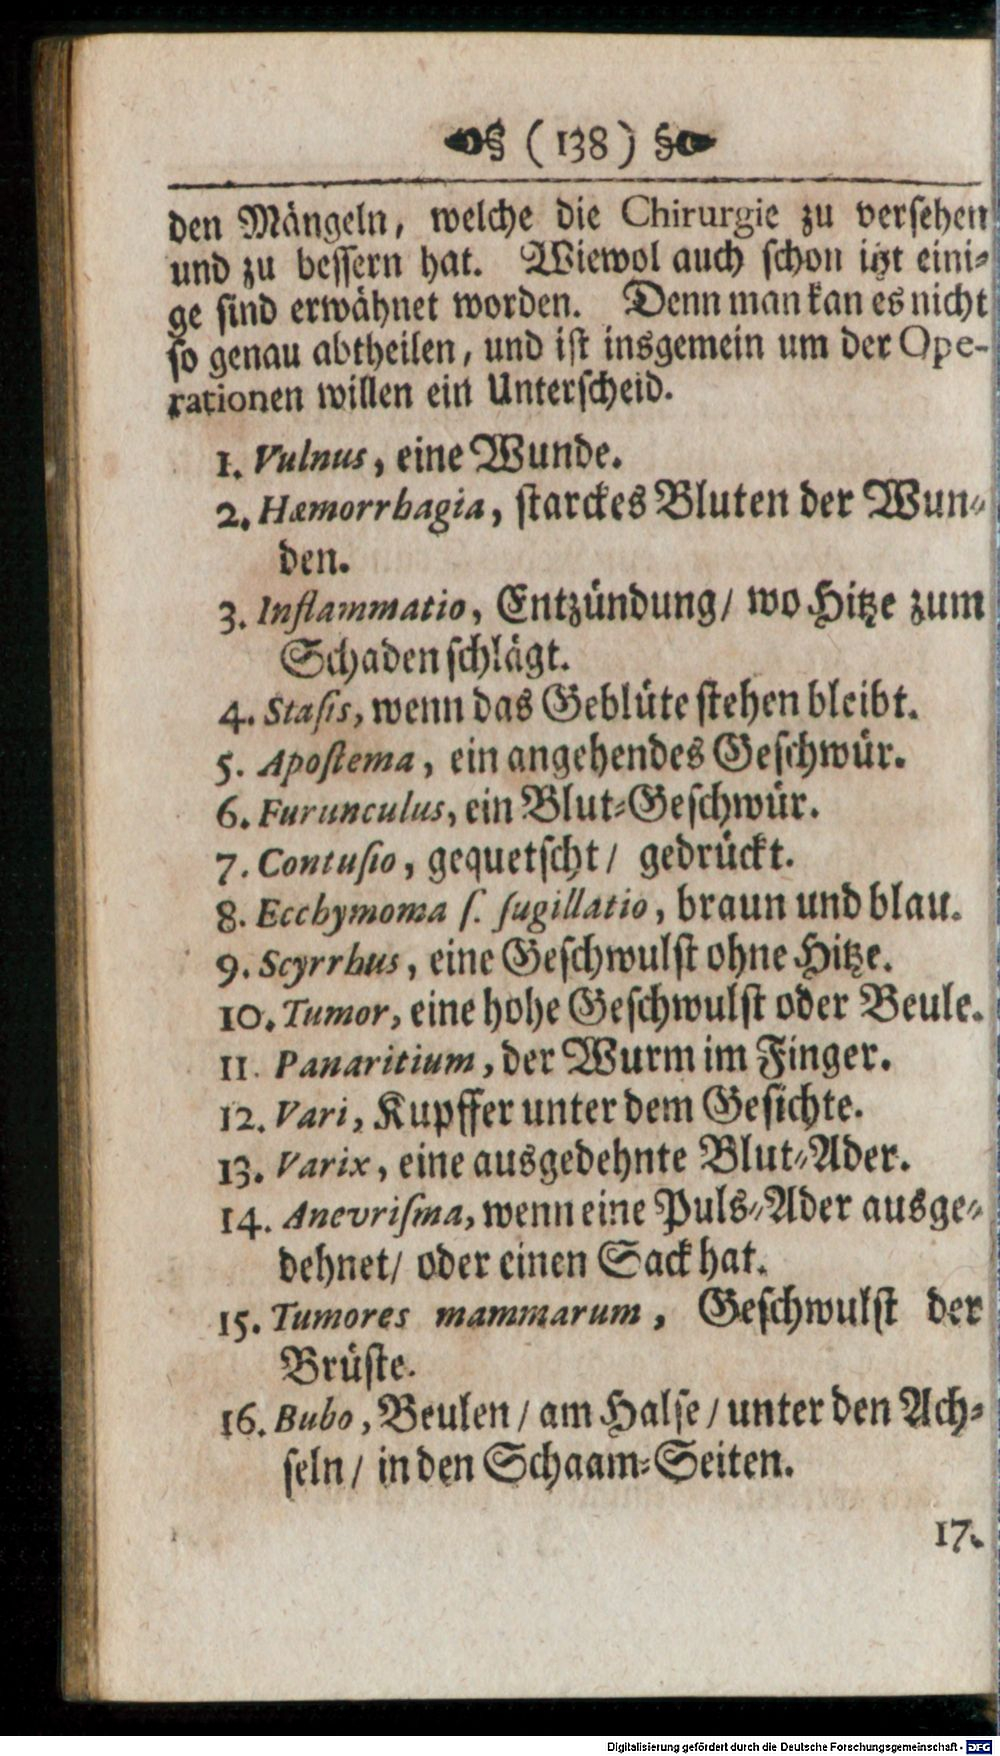 § (138) §
den Mängeln, welche die Chirurgie zu versehen
und zu bessern hat. Wiewol auch schon itzt eini-
ge sind erwähnet worden. Denn man kan es nicht
so genau abtheilen, und ist insgemein um der Ope-
rationen willen ein Unterscheid.
1. Vulnus, eine Wunde.
2. Hæmorrhagia, starckes Bluten der Wun-
den.
3. Inflammatio, Entzündung/ wo Hitze zum
Schaden schlägt.
4. Stasis, wenn das Geblüte stehen bleibt.
5. Apostema, ein angehendes Geschwür.
6. Furunculus, ein Blut-Geschwür.
7. Contusio, gequetscht/ gedrückt.
8. Ecchymoma s. sugillatio, braun und blau.
9. Scyrrhus, eine Geschwulst ohne Hitze.
10. Tumor, eine hohe Geschwulst oder Beule.
11. Panaritium, der Wurm im Finger.
12. Vari, Kupffer unter dem Gesichte.
13. Varix, eine ausgedehnte Blut-Ader.
14. Anevrisma, wenn eine Puls-Ader ausge-
dehnet/ oder einen Sack hat.
15. Tumores mammarum, Geschwulst der
Brüste.
16. Bubo, Beulen/ am Halse/ unter den Ach-
seln/ in den Schaam-Seiten.
17.
Digitalisierung gefördert durch die Deutsche Forschungsgemeinschaft - DFG